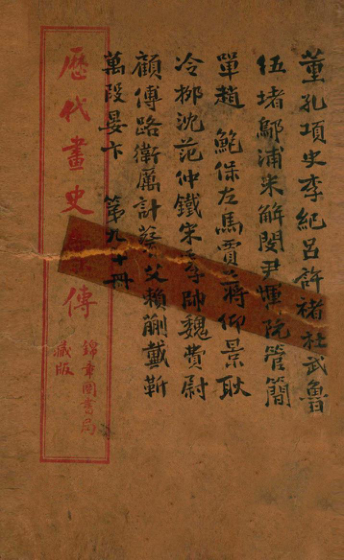 董孔項史李紀呂許褚杜武魯
伍堵鄔浦米解閔尹惲阮管簡
單趙 鮑保左馬賈 蔣仰景耿
冷柳沈范仲鐵宋 季帥魏費尉
顧傅路衛厲計蔡艾賴蒯戴靳
萬段晏卞 第九十冊
歷代畫史 傳
錦章圖書局
藏版